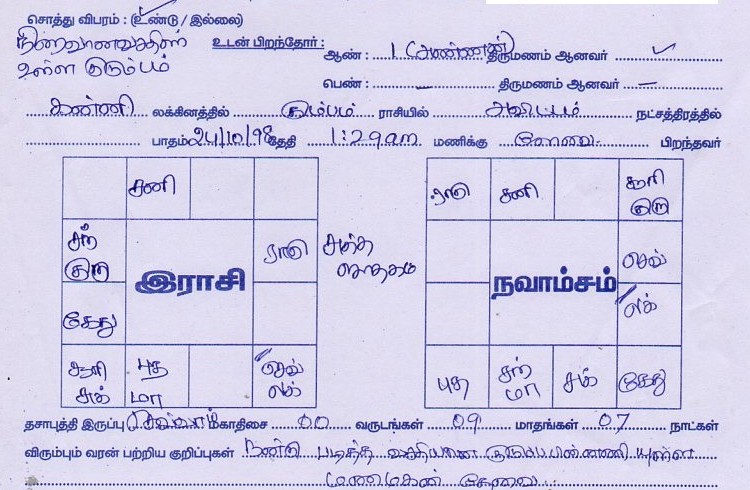 சொத்து விபரம் : (உண்டு / இல்லை)
உடன் பிறந்தோர் :
உள்ள குடும்பம்
ஆண் : 1 (அண்ணன்) திருமணம் ஆனவர் ✓
பெண் : — திருமணம் ஆனவர் —
கன்னி லக்கினத்தில் கும்பம் ராசியில் அவிட்டம் நட்சத்திரத்தில்
பாதம் 24/10/98 தேதி 1:29am மணிக்கு கோவை பிறந்தவர்
சனி
ராகு
குரு
இராசி
சுத்த
ஜாதகம்
கேது
சூரி
சுக்
புத
மா
செவ்
லக்
ராகு
சனி
சூரி
குரு
நவாம்சம்
செவ்
லக்
புத
சந்
மா
சுக்
கேது
தசாபுத்தி இருப்பு செவ்வாய் மகாதிசை 00 வருடங்கள் 09 மாதங்கள் 07 நாட்கள்
விரும்பும் வரன் பற்றிய குறிப்புகள் நன்கு படித்த வசதியான குடும்பபின்னணியுள்ள
மணமகன் தேவை